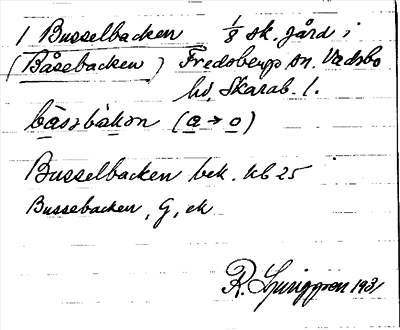 1 Busselbacken 1/8 sk. gård i
(Båsebacken) Fredsbergs sn. Vadsbo
hd, Skarab. l.
båsəbakən (a → o)
Busselbacken bek. hb 25
Bussebacken, G, ek
R. Ljunggren 1931